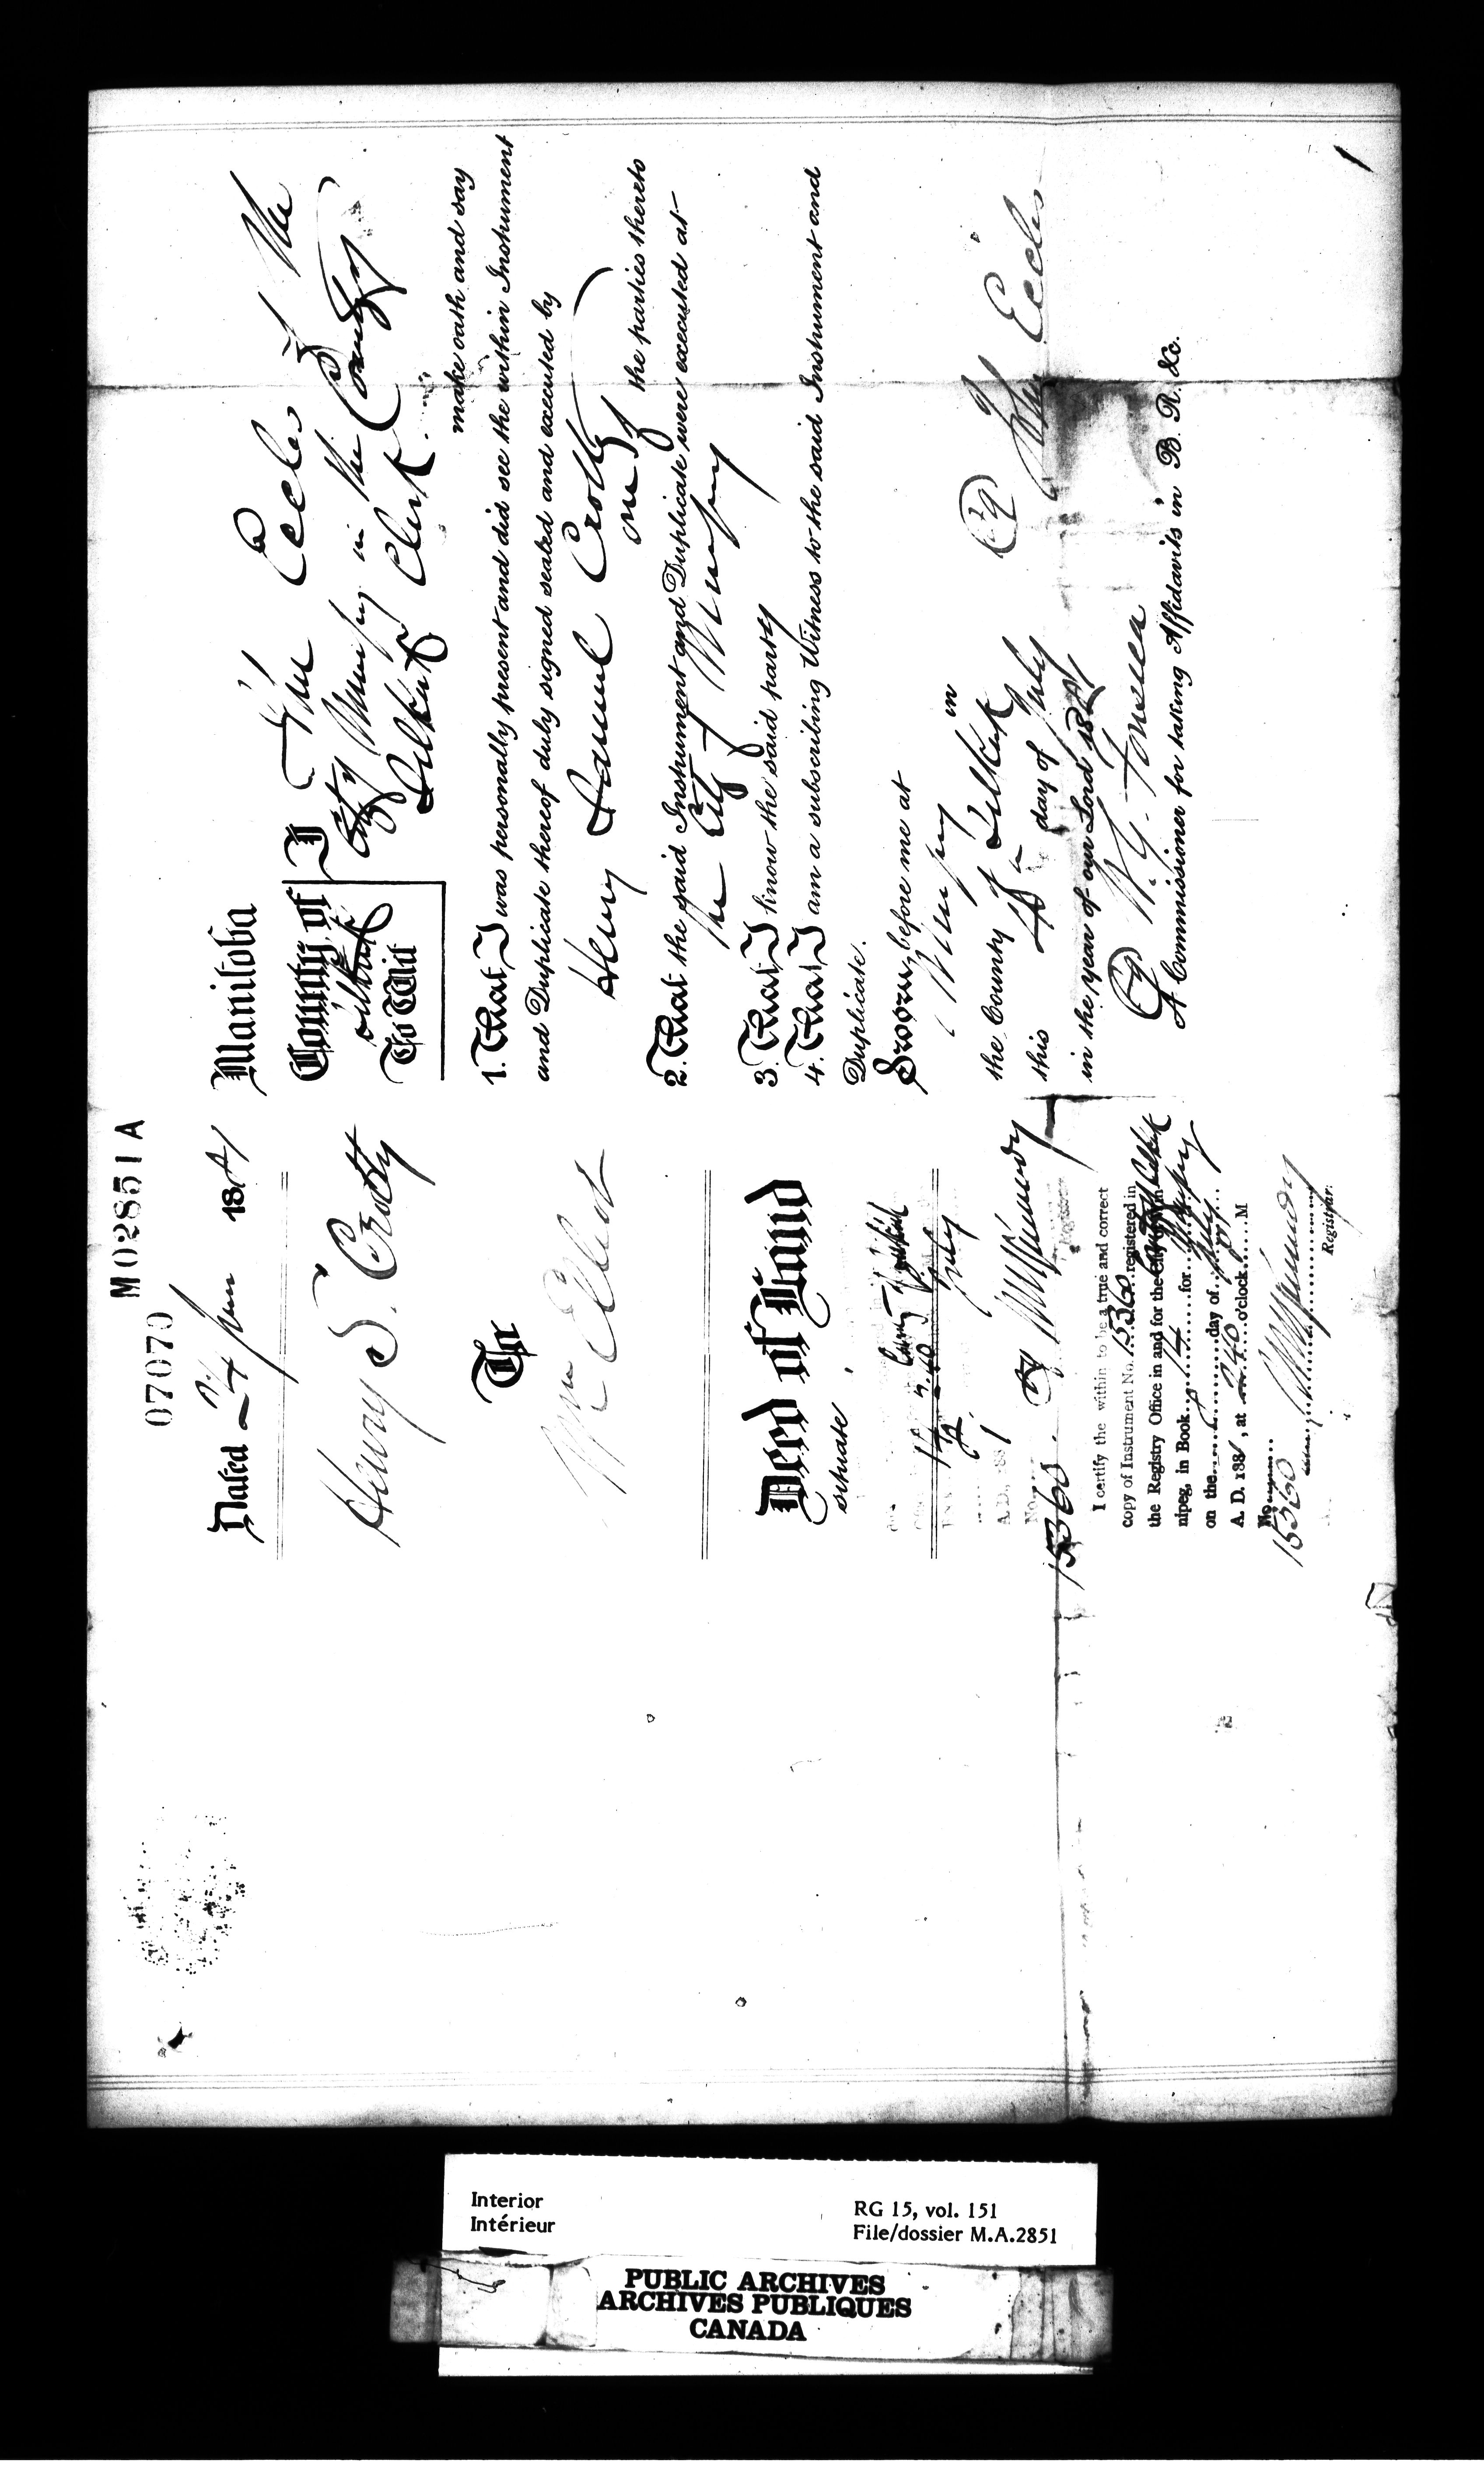 07070 M02851A
Dated 24th June 1881
Henry S. Crotty
To
Wm Elliot
Deed of Land
situate
County Selkirk
2.40
July
1
15360
I certify the within to be a true and correct
copy of Instrument No. 15360 registered in
the Registry Office in and for the County Selkirk
nipeg, in Book for
on the day of July
A. D. 1881, at 2.40 o'clock M
No
15360
Registrar.
Manitoba
County of
Selkirk
To Wit
I John Eccles of the
City Winnipeg in the County
Selkirk Clerk
make oath and say
1. That I was personally present and did see the within Instrument
and Duplicate thereof duly signed sealed and executed by
Henry Samuel Crotty
one of the parties thereto
2. That the said Instrument and Duplicate were executed at
the City of Winnipeg
3. That I know the said party
4. That I am a subscribing Witness to the said Instrument and
Duplicate.
Sworn before me at
Winnipeg in
the County of Selkirk
this day of July
in the year of our Lord 1881
John Eccles
A Commissioner for taking Affidavits in B. R. &c.
1
Interior
Intérieur
RG 15, vol. 151
File/dossier M.A.2851
PUBLIC ARCHIVES
ARCHIVES PUBLIQUES
CANADA